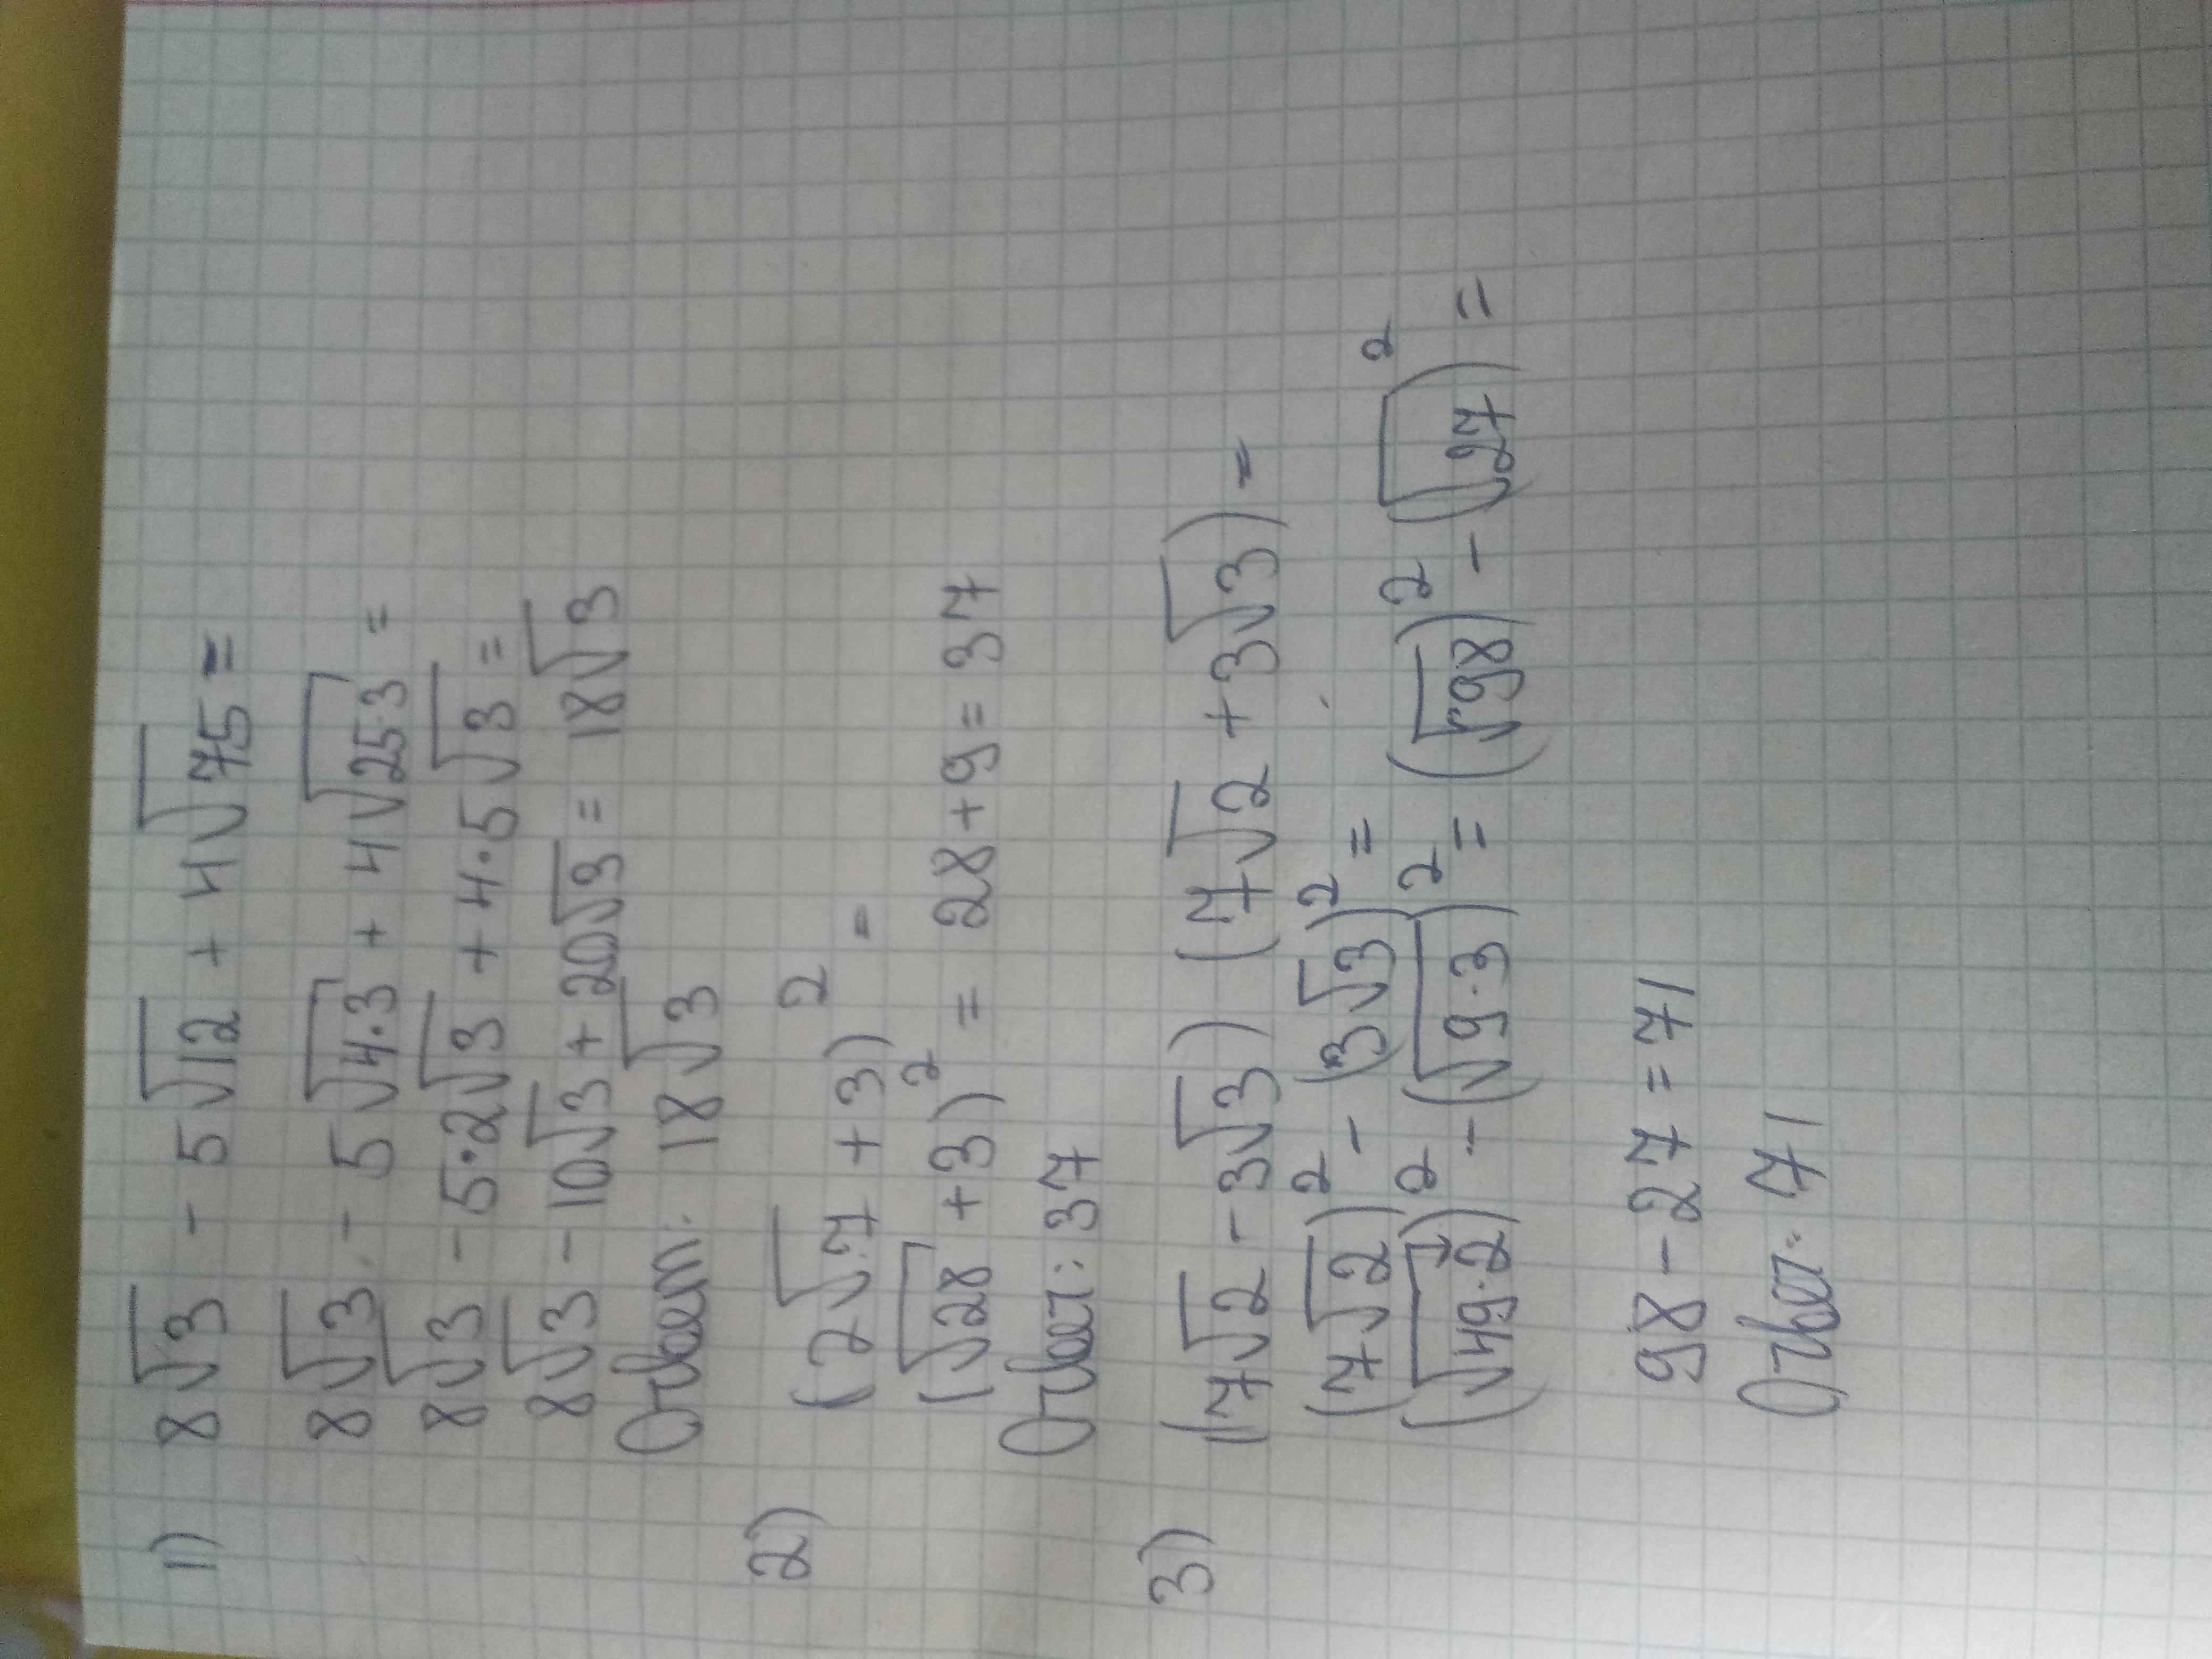 1) 8√3 - 5√12 + 4√75 =
8√3 - 5√4·3 + 4√25·3 =
8√3 - 5·2√3 + 4·5√3 =
8√3 - 10√3 + 20√3 = 18√3
Ответ: 18√3
2) (2√7 + 3)² -
(√28 + 3)² = 28 + 9 = 37
Ответ: 37
3) (7√2 - 3√3) (7√2 + 3√3) =
(7√2)² - (3√3)² =
(√49·2)² - (√9·3)² = (√98)² - (√27)² =
98 - 27 = 71
Ответ: 71